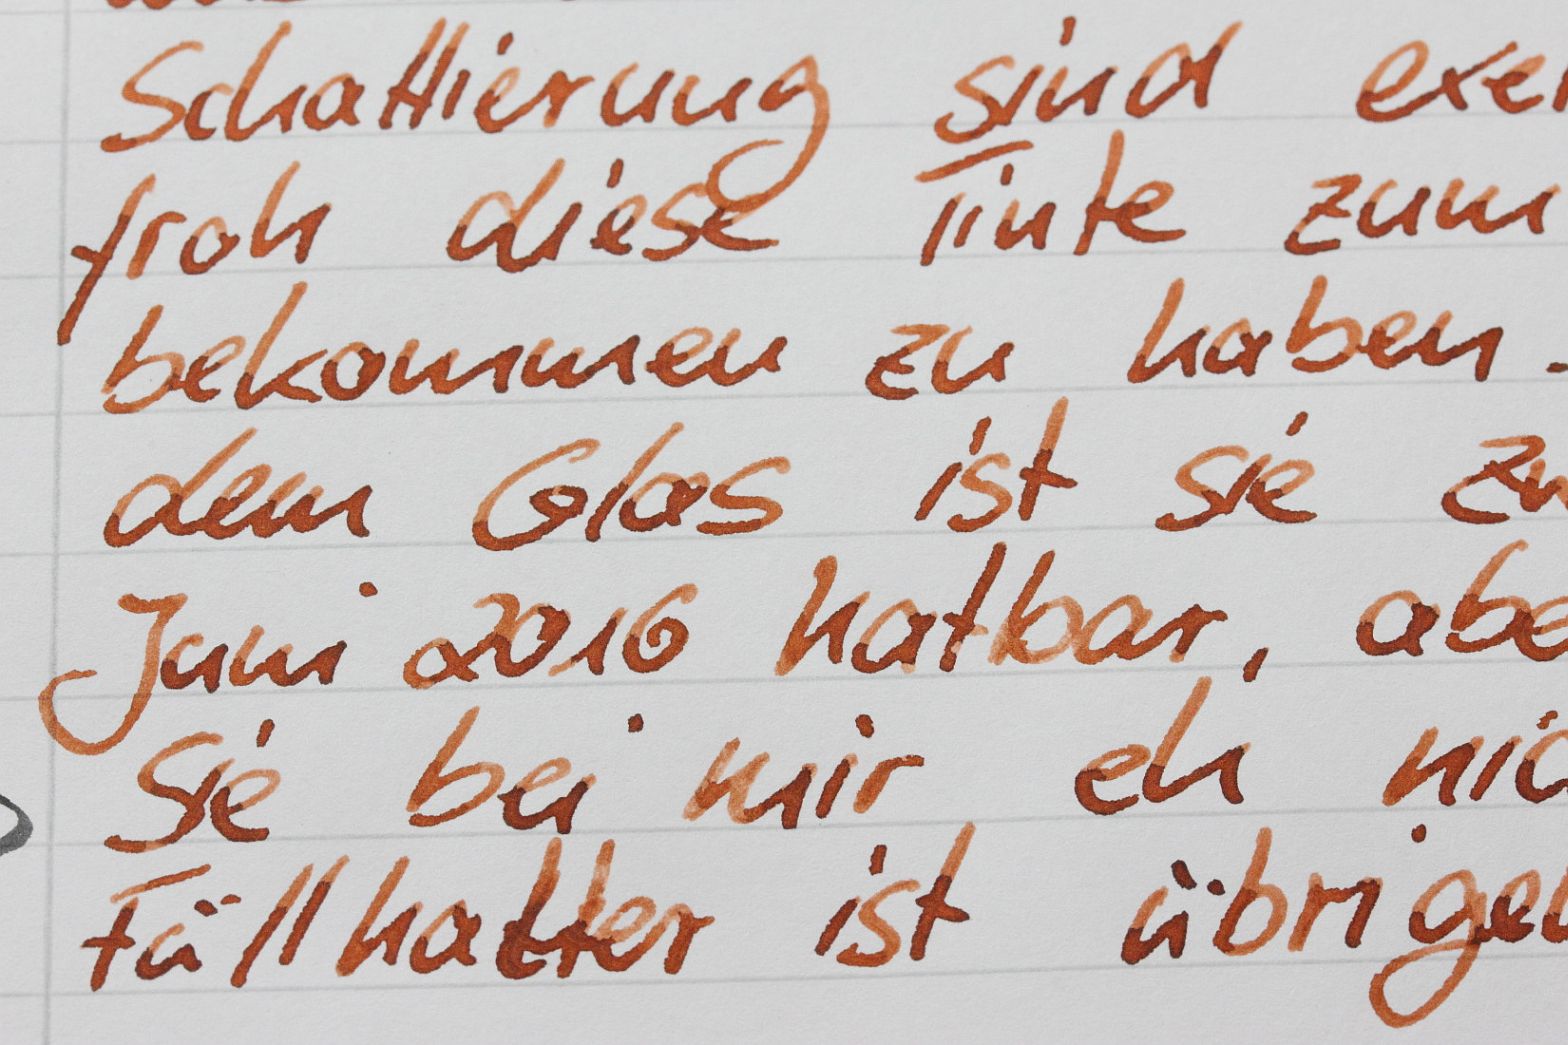 Schattierung sind exe
froh diese Tinte zum
bekommen zu haben.
dem Glas ist sie zu
Juni 2016 hatbar, abe
Sie bei mir eh nic
Füllhalter ist übrige